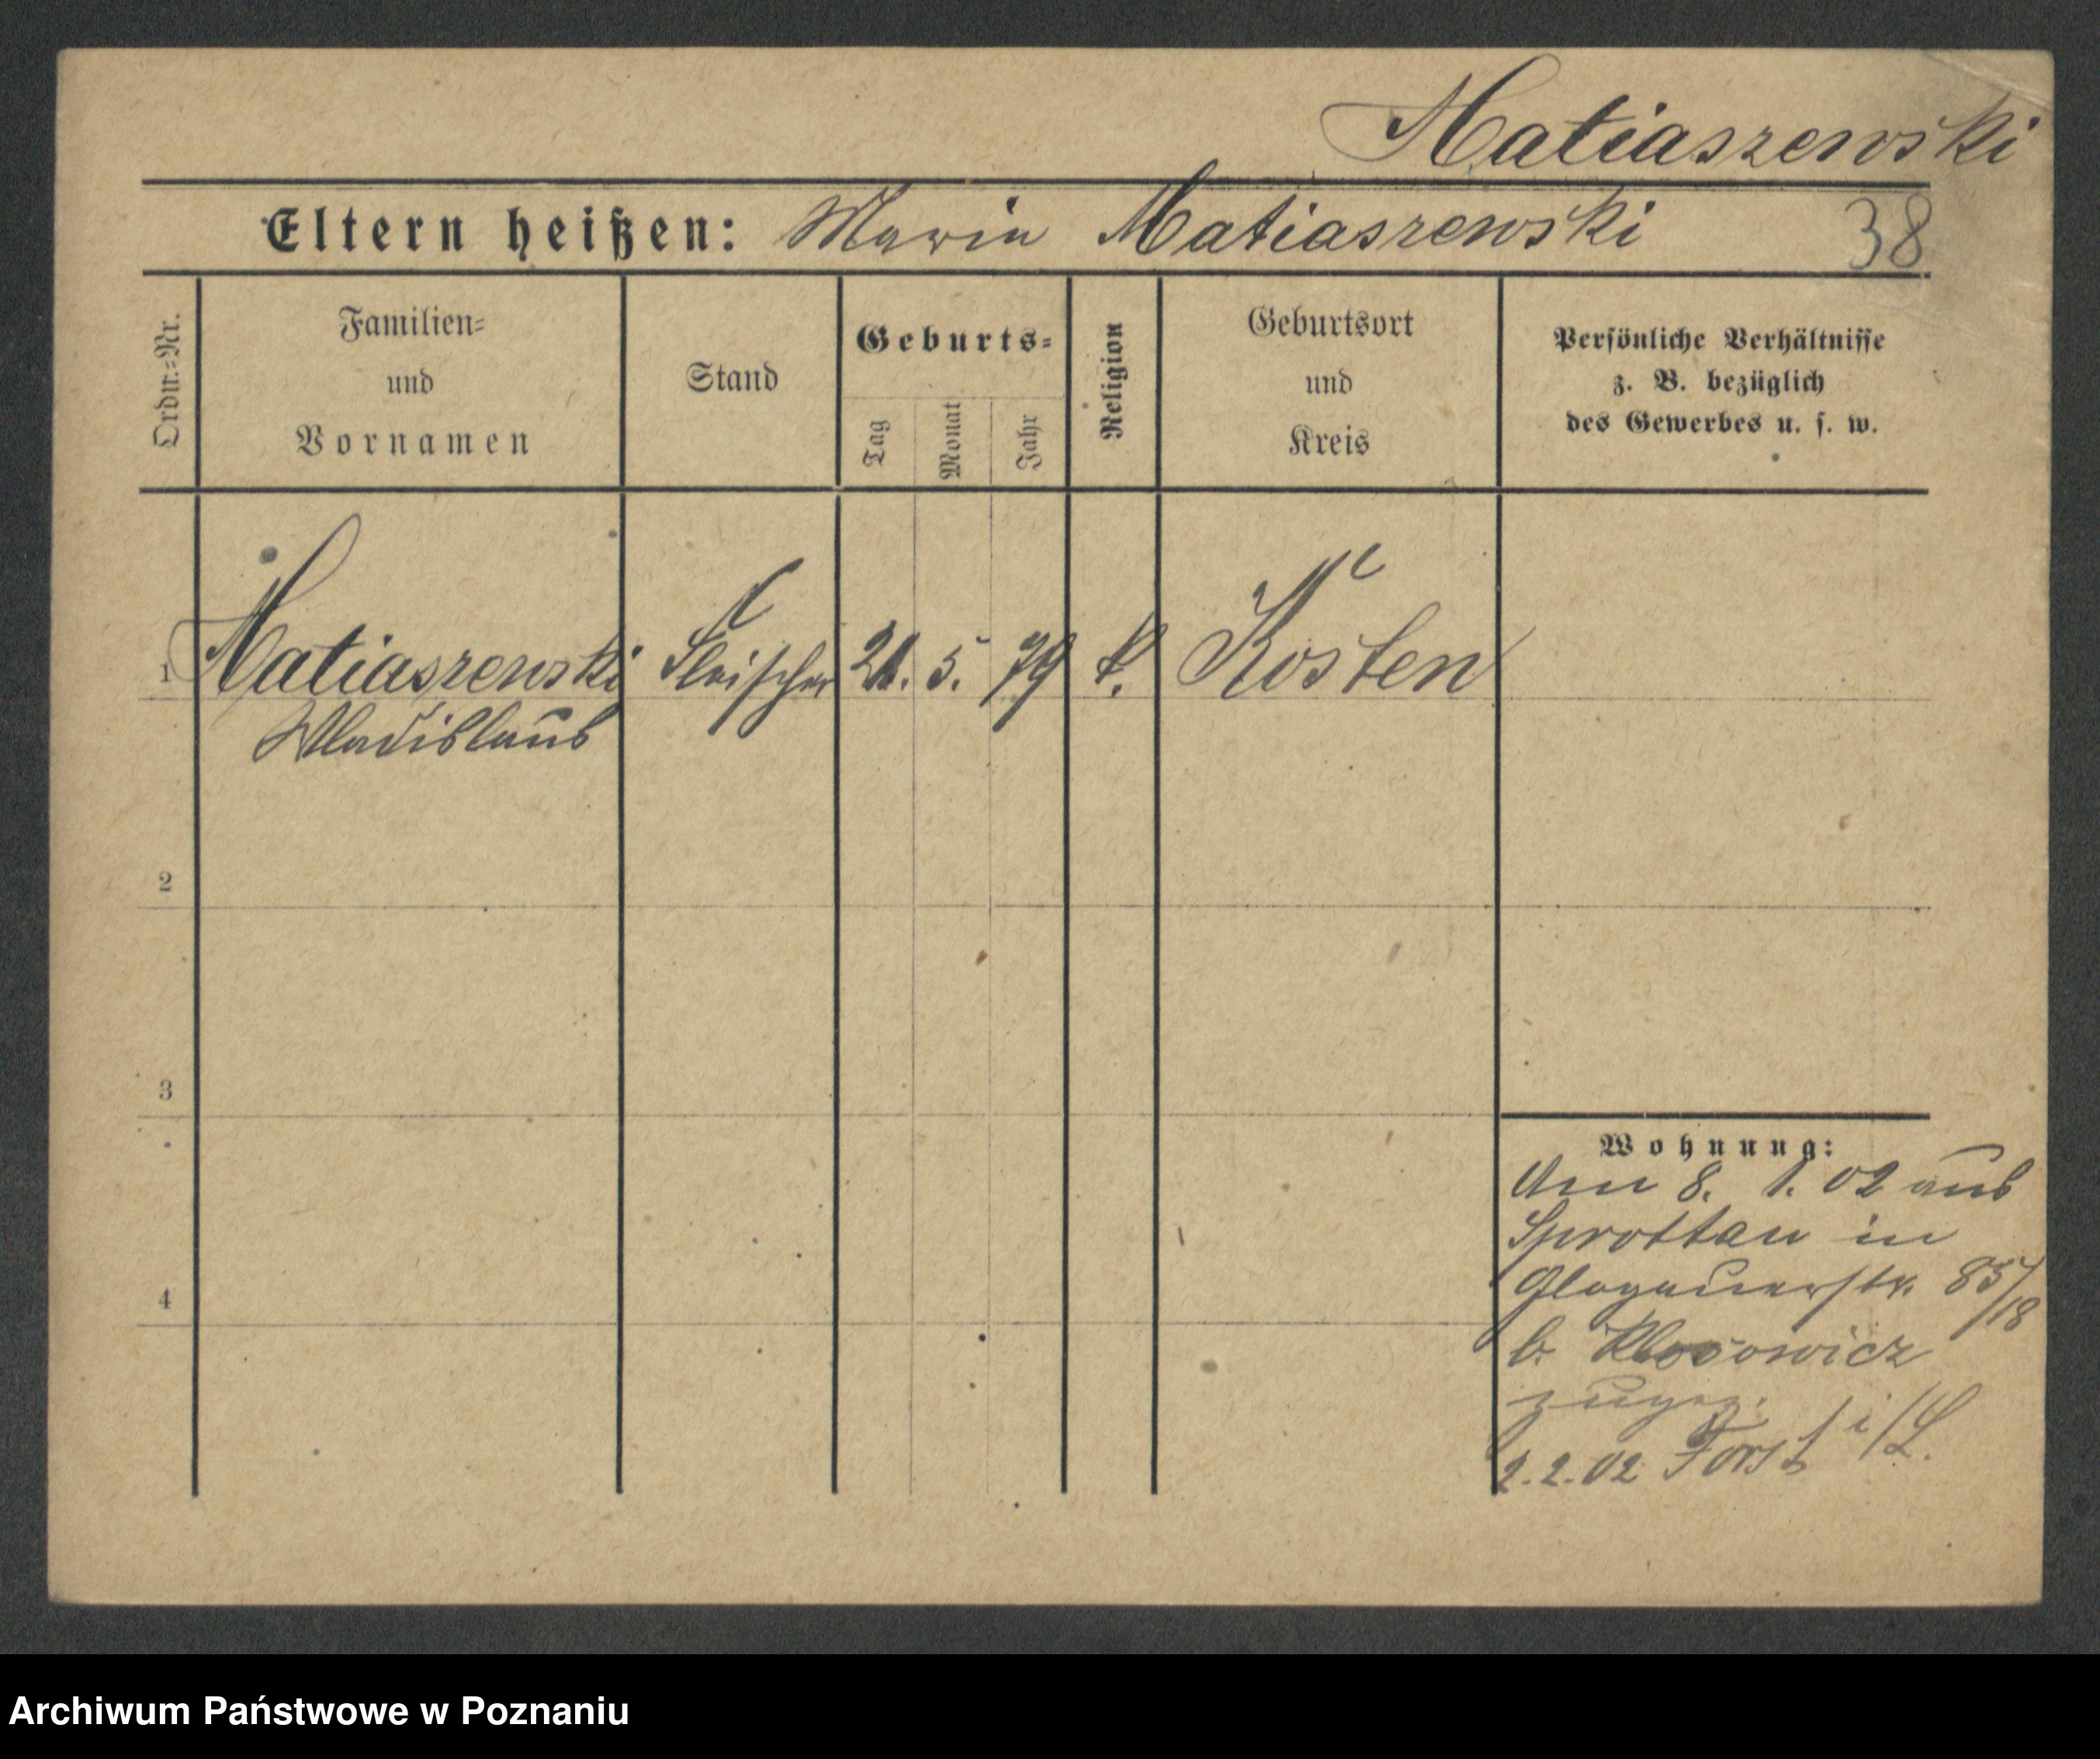 Matiaszewski
Eltern heißen: Maria Matiaszewski 38
Ordn.=Nr.
Familien=
und
Vornamen
Stand
Geburts=
Tag
Monat
Jahr
Religion
Geburtsort
und
Kreis
Persönliche Verhältnisse
z. B. bezüglich
des Gewerbes u. s. w.
1 Matiaszewski Fleischer 21. 5. 79 k. Kosten
Wladislaus
2
3
4
Wohnung:
Am 8. 1. 02 aus
Sprottau in
Glogauerstr. 85/18
b. Klosowicz
zugez.
2.2.02 Forst i/L.
Archiwum Państwowe w Poznaniu